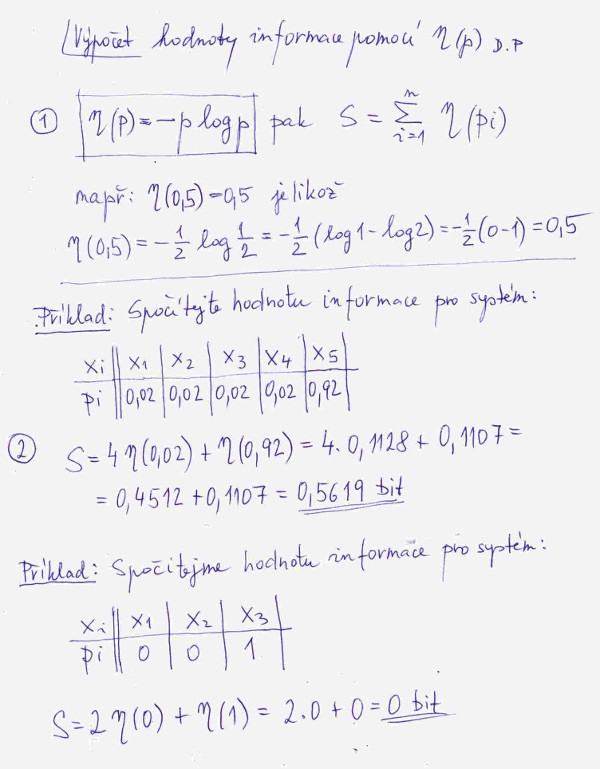 Výpočet hodnoty informace pomocí η(p) D.P
① η(p)=-p log p pak S = ∑ᵢ₌₁ⁿ η(pi)
např: η(0,5)=0,5 jelikož
η(0,5) = -1/2 log 1/2 = -1/2 (log1-log2) = -1/2 (0-1) = 0,5
Příklad: Spočítejte hodnotu informace pro systém:
xi | x1 | x2 | x3 | x4 | x5
pi | 0,02 | 0,02 | 0,02 | 0,02 | 0,92
② S = 4 η(0,02) + η(0,92) = 4. 0,1128 + 0,1107 =
= 0,4512 + 0,1107 = 0,5619 bit
Příklad: Spočítejme hodnotu informace pro systém:
xi | x1 | x2 | x3
pi | 0 | 0 | 1
S = 2 η(0) + η(1) = 2.0 + 0 = 0 bit